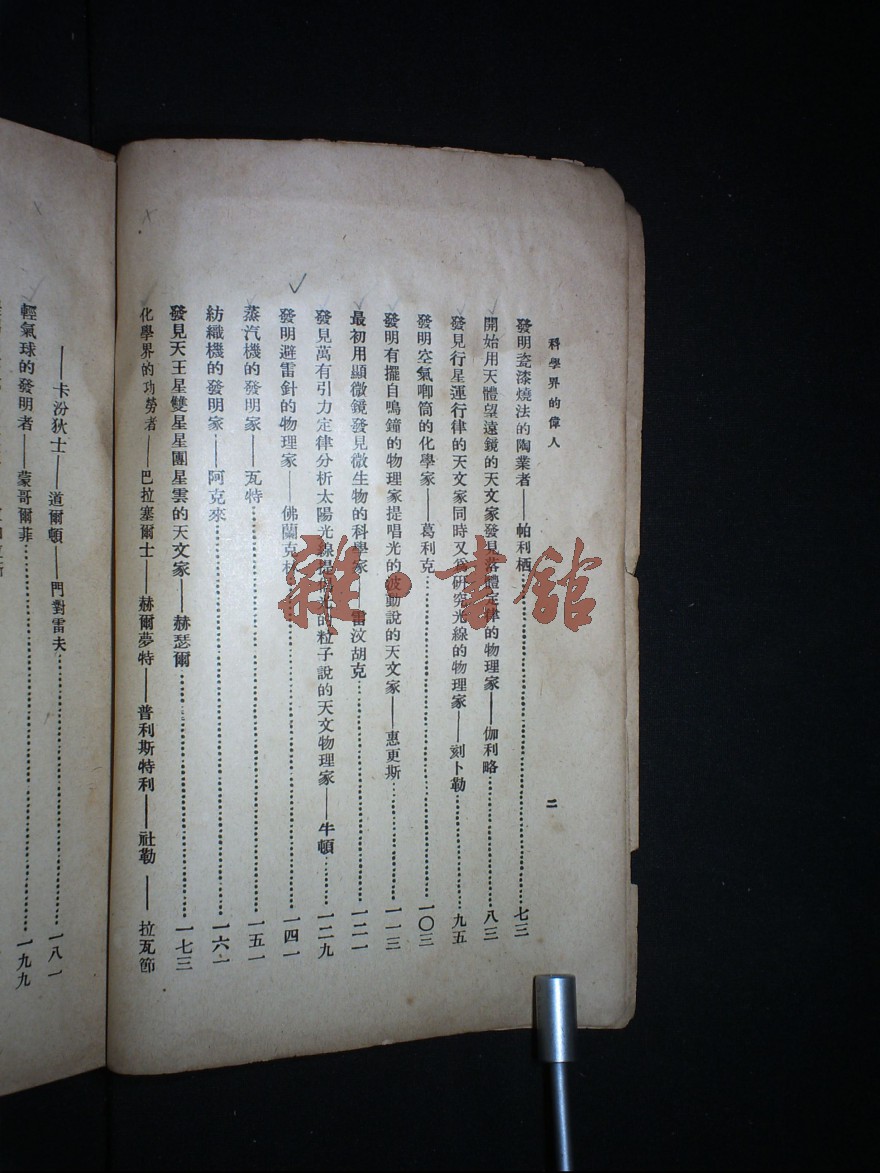 科學界的偉人
二
發明瓷漆燒法的陶業者——帕利栖……七三
開始用天體望遠鏡的天文家發見落體定律的物理家——伽利略……八三
發見行星運行律的天文家同時又爲研究光線的物理家——刻卜勒……九五
發明空氣唧筒的化學家——葛利克……一〇三
發明有擺自鳴鐘的物理家提唱光的波動說的天文家——惠更斯……一一三
最初用顯微鏡發見微生物的科學家——雷汶胡克……一二一
發見萬有引力定律分析太陽光線提唱光的粒子說的天文物理家——牛頓……一二九
發明避雷針的物理家——佛蘭克林……一四一
蒸汽機的發明家——瓦特……一五一
紡織機的發明家——阿克來……一六一
發見天王星雙星星團星雲的天文家——赫瑟爾……一七三
化學界的功勞者——巴拉塞爾士——赫爾夢特——普利斯特利——社勒——拉瓦節
——卡汾狄士——道爾頓——門對雷夫……一八一
輕氣球的發明者——蒙哥爾菲……一九九
雜·書館